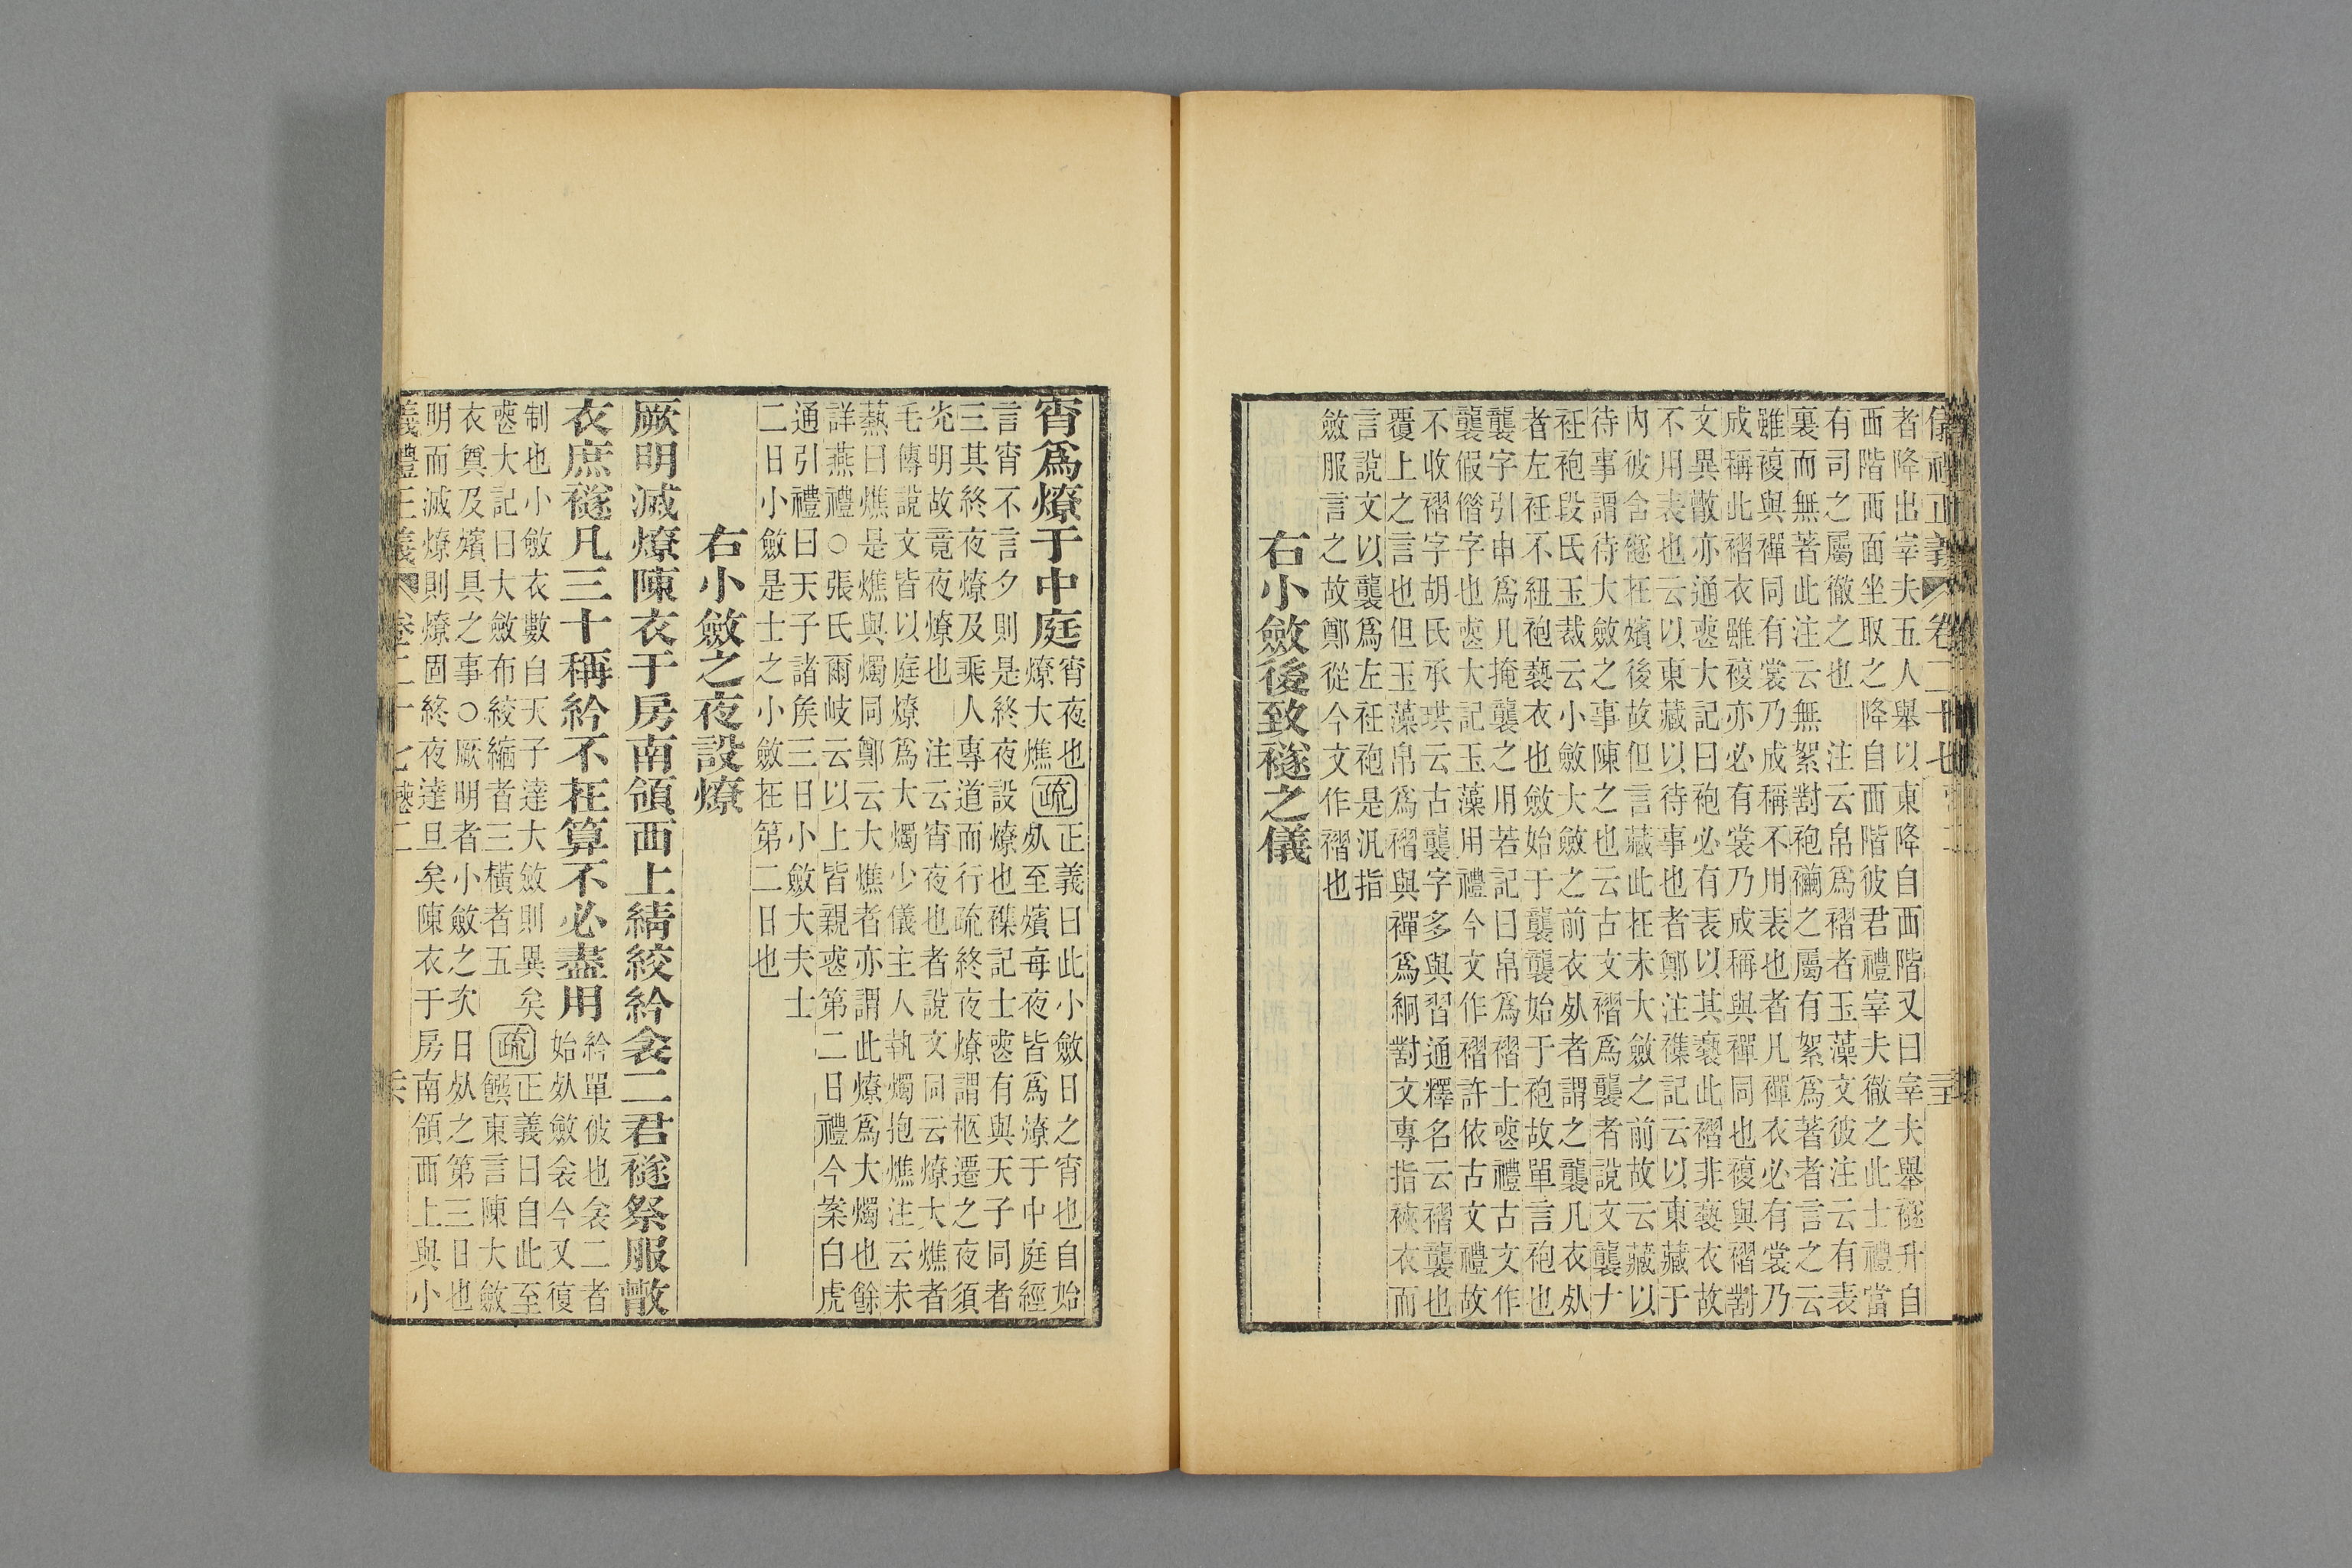 儀禮正義 卷二十七
者降出宰夫五人舉以東降自西階又曰宰夫舉襚升自
西階西面坐取之降自西階彼君禮宰夫徹之此士禮當
有司之屬徹之也　注云帛爲褶者玉藻文彼注云有表
裏而無著此注云無絮對袍襺之屬有絮爲著者言之云
雖複與襌同有裳乃成稱不用表也者凡襌衣必有裳乃
成稱此褶衣雖複亦必有裳乃成稱與襌同也複與褶對
文異散亦通喪大記曰袍必有表以其褻此褶非褻衣故
不用表也云以東藏以待事也者鄭注襍記云以東藏于
內彼含襚在殯後故但言藏此在未大斂之前故云藏以
待事謂待大斂之事陳之也云古文褶爲襲者說文襲ナ
衽袍段氏玉裁云小斂大斂之前衣死者謂之襲凡衣死
者左衽不紐袍褻衣也斂始于襲襲始于袍故單言袍也
襲字引申爲凡掩襲之用若記曰帛爲褶士喪禮古文作
襲假借字也喪大記玉藻用禮今文作褶許依古文禮故
不收褶字胡氏承珙云古襲字多與習通釋名云褶襲也
覆上之言也但玉藻帛爲褶與襌爲絅對文專指裌衣而
言說文以襲爲左衽袍是汎指
斂服言之故鄭從今文作褶也
右小斂後致襚之儀
宵爲燎于中庭
宵夜也
燎大燋
疏
正義曰此小斂日之宵也自始
死至殯每夜皆爲燎于中庭經
言宵不言夕則是終夜設燎也襍記士喪有與天子同者
三其終夜燎及乘人專道而行疏終夜燎謂柩遷之夜須
光明故竟夜燎也　注云宵夜也者說文同云燎大燋者
毛傳說文皆以庭燎爲大燭少儀主人執燭抱燋注云未
爇曰燋是燋與燭同鄭云大燋者亦謂此燎爲大燭也餘
詳燕禮○張氏爾岐云以上皆親喪第二日禮今案白虎
通引禮曰天子諸矦三日小斂大夫士
二日小斂是士之小斂在第二日也
右小斂之夜設燎
厥明滅燎陳衣于房南領西上綪絞紟衾二君襚祭服散
衣庶襚凡三十稱紟不在算不必盡用
紟單被也衾二者
始死斂衾今又復
制也小斂衣數自天子達大斂則異矣
喪大記曰大斂布絞縮者三橫者五
疏
正義曰自此至
饌東言陳大斂
衣奠及殯具之事○厥明者小斂之次日死之第三日也
明而滅燎則燎固終夜達旦矣陳衣于房南領西上與小
儀禮正義 卷二十七 喪二